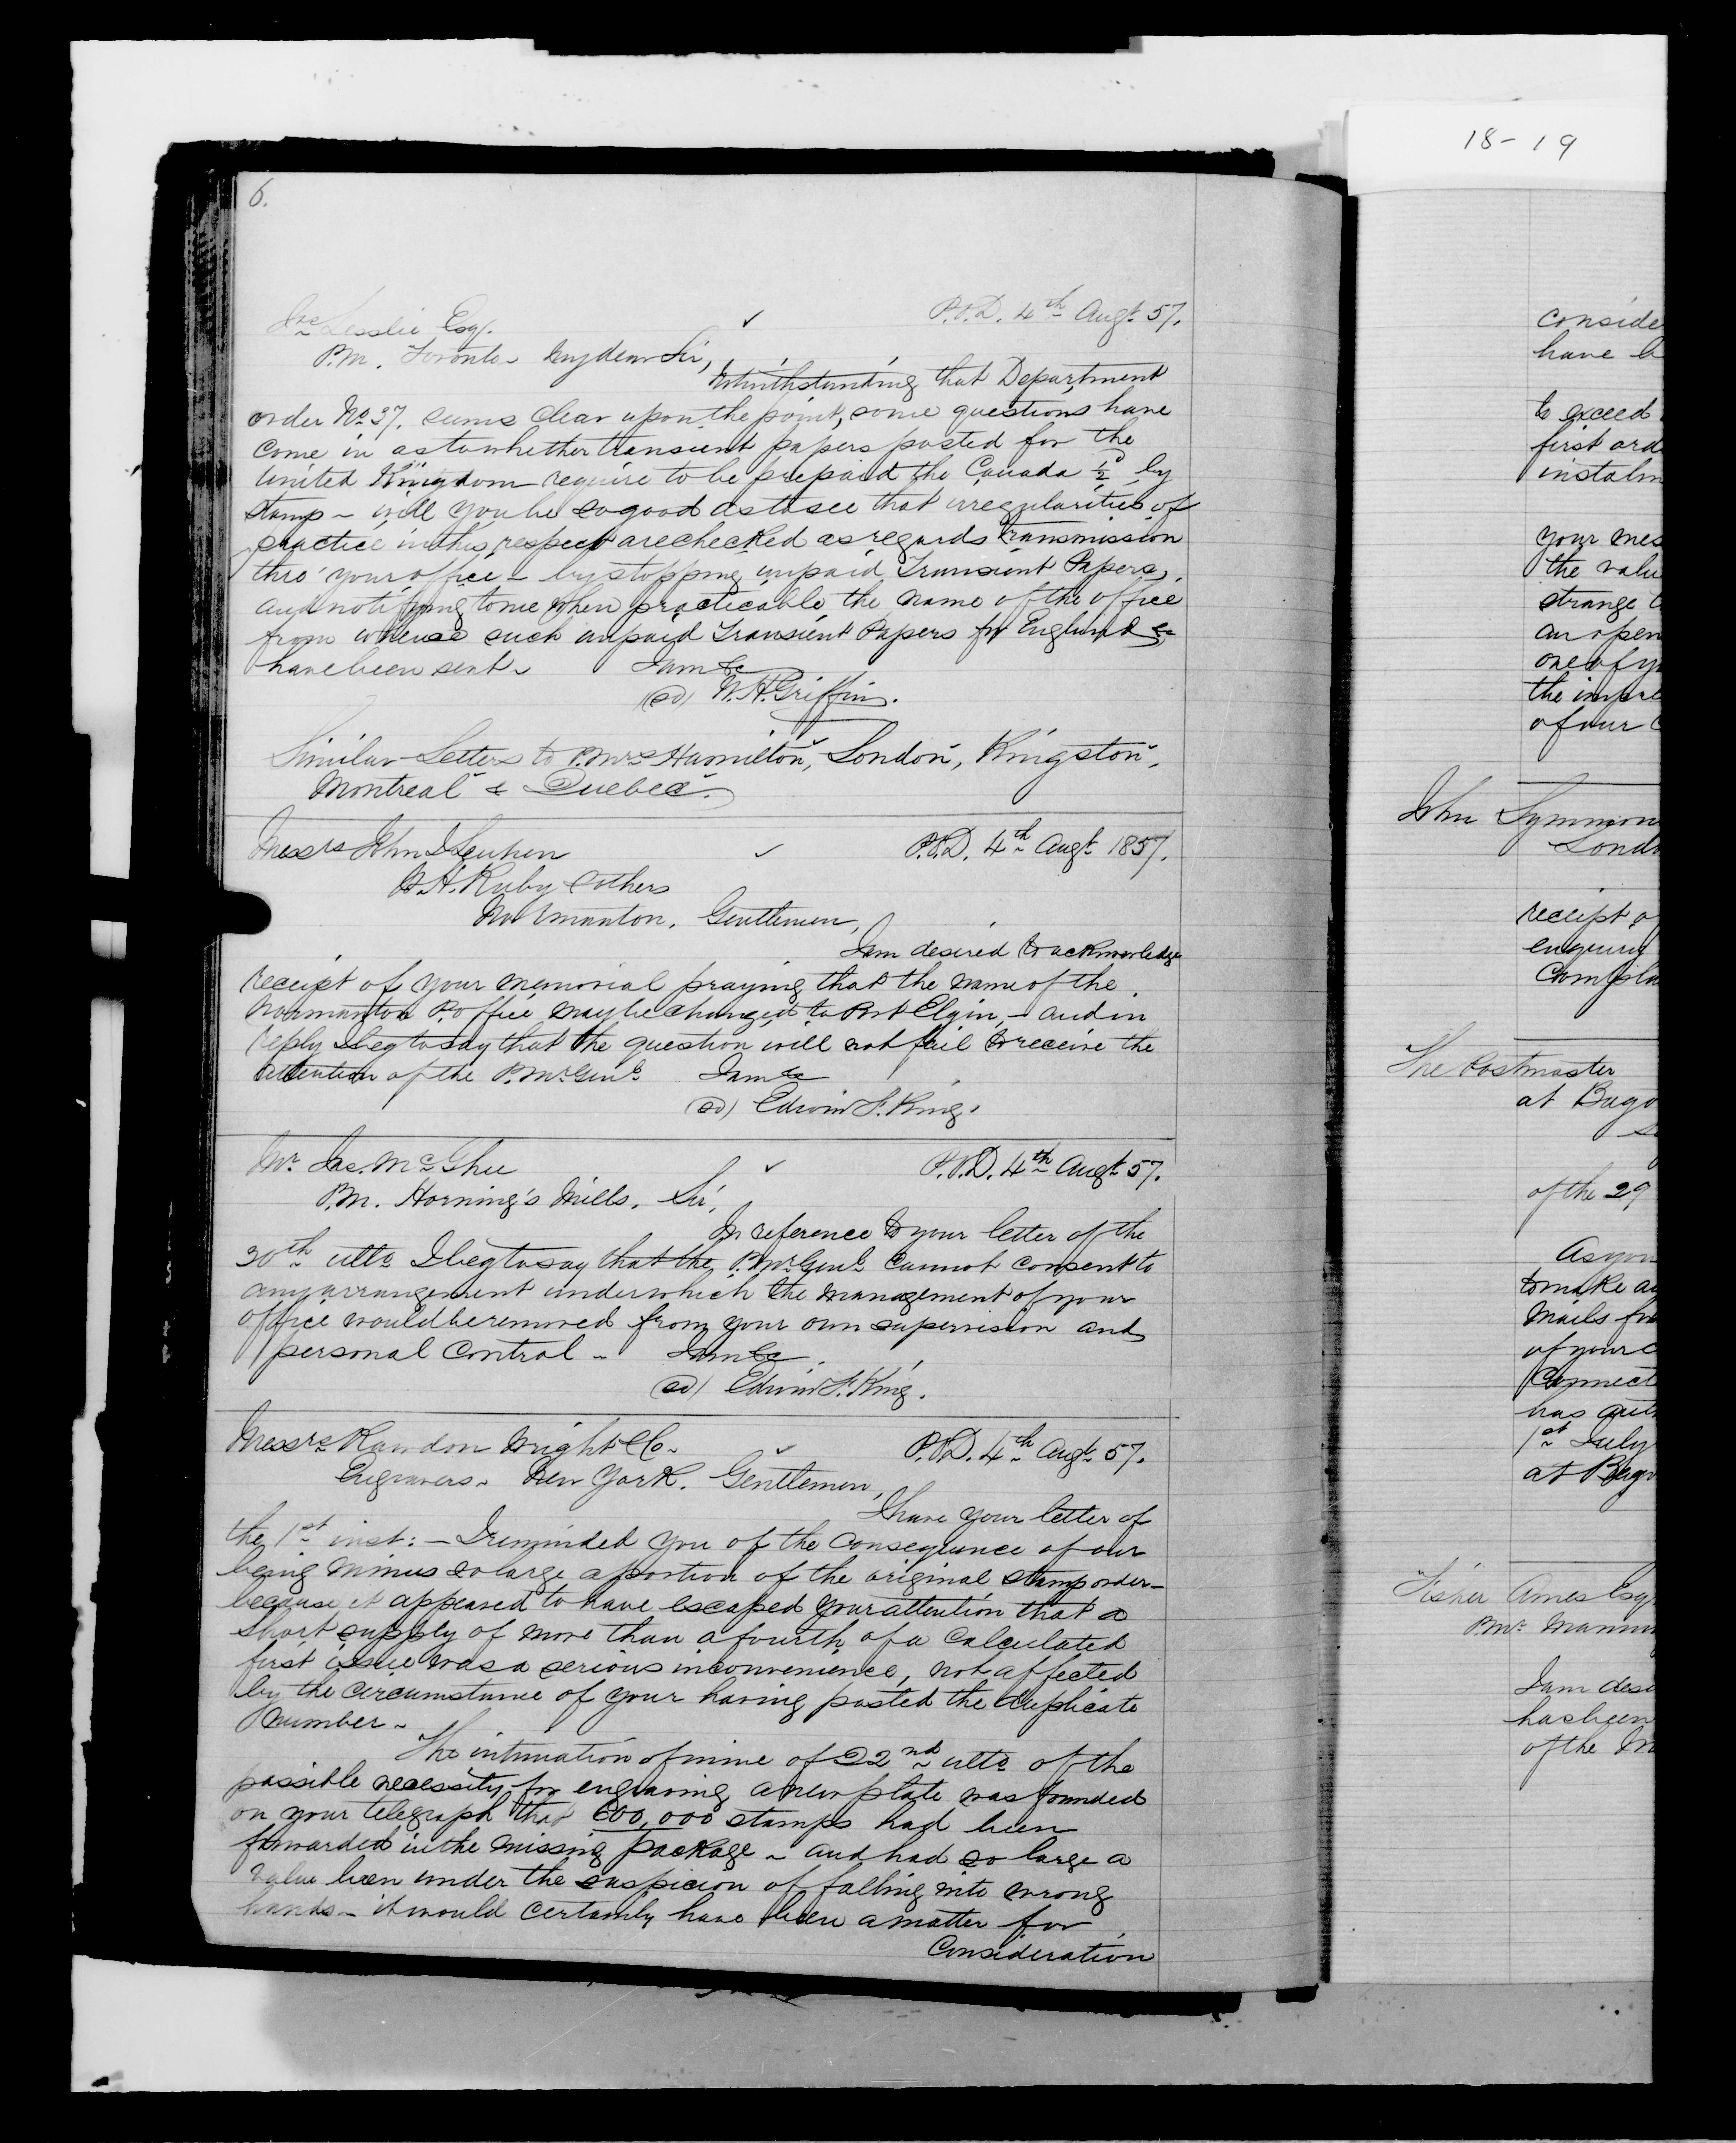 18-19
6.
Jas Lesslie Esq. P.O.D. 4th Augt 57.
P.M. Toronto My dear Sir,
Notwithstanding that Department
order No 37. seems clear upon the point, some questions have
come in as to whether transient papers posted for the
United Kingdom require to be prepaid the Canada ½d by
stamp - will you be so good as to see that irregularities of
practice in this respect are checked as regards transmission
thro' your office - by stopping unpaid Transient Papers,
and notifying to me when practicable the name of the office
from whence such unpaid Transient Papers for England &c
have been sent - I am &c
(sd) W. H. Griffin.
Similar Letters to P.Mrs Hamilton, London, Kingston,
Montreal & Quebec.
Messrs John P.O.D. 4th Augt 1857.
Ruby & others
Normanton. Gentlemen,
I am desired to acknowledge
receipt of your memorial praying that the name of the
Normanton P. office may be changed to Port Elgin, - and in
reply I beg to say that the question will not fail to receive the
attention of the P.Mr Genl I am &c
(sd) Edwin F. King.
Mr Jas. McGhee P.O.D. 4th Augt 57.
P.M. Horning's Mills. Sir,
In reference to your letter of the
30th ulto I beg to say that the P.Mr Genl cannot consent to
any arrangement under which the management of your
office would be removed from your own supervision and
personal control - I am &c
(sd) Edwin F. King.
Messrs Rawdon Wright & Co. P.O.D. 4th Augt 57.
Engravers. New York. Gentlemen,
I have your letter of
the 1st inst: - I reminded you of the consequence of our
being minus so large a portion of the original stamp order -
because it appeared to have escaped your attention that a
short supply of more than a fourth of a calculated
first issue was a serious inconvenience, not affected
by the circumstance of your having posted the duplicate
number -
The intimation of mine of 22nd ulto of the
possible necessity for engraving a new plate was founded
on your telegraph that 600,000 stamps had been
forwarded in the missing package - and had so large a
value been under the suspicion of falling into wrong
hands - it would certainly have been a matter for
Consideration
conside
have b
to exceed
first ord
instalm
your mes
the valu
strange
an open
one of yo
the impre
of our
John Symmon
Londo
receipt of
enquiry
Compla
The Postmaster
at Bago
of the 29
As you
to make a
Mails fro
of your
Connect
has aut
1st July
at Bago
Fisher Ames Esq
P.Mr Mannin
I am desi
has been
of the M